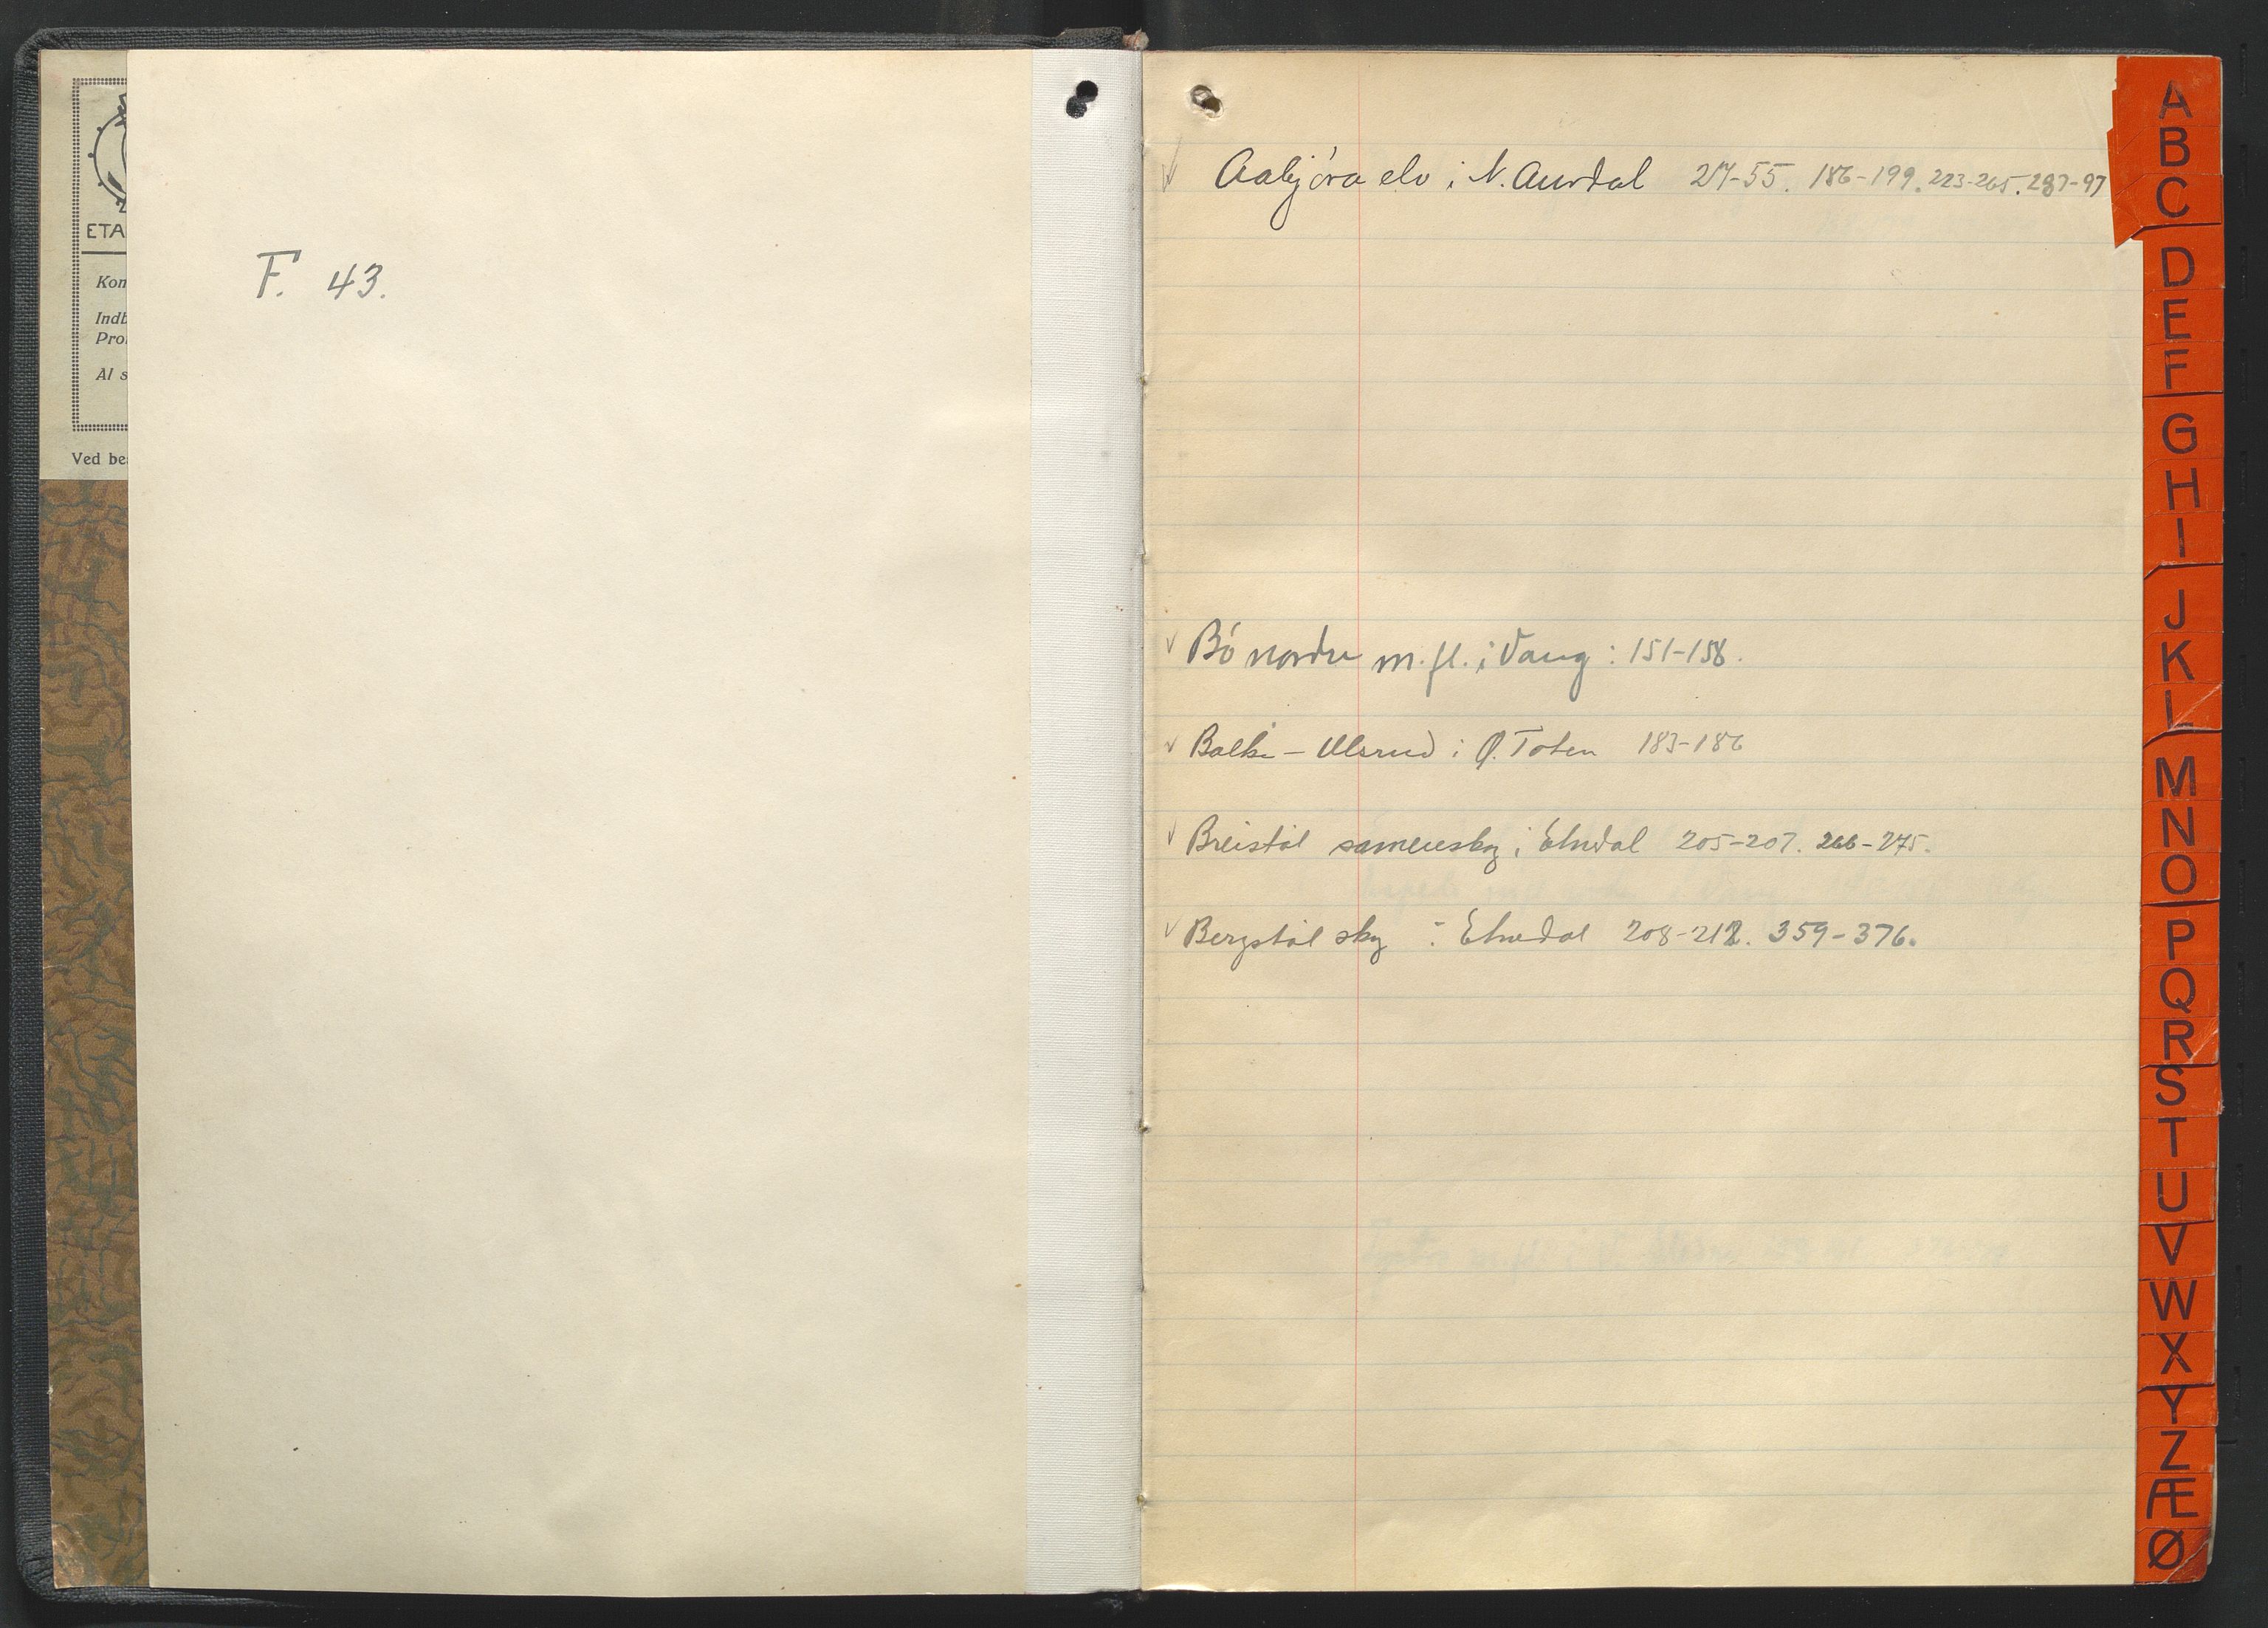 ETA
Kon
Indb
Pro
Al s
Ved be
F. 43.
Aabjöra elv i N. Aurdal 217-55. 186-199. 223-265. 287-97
Bö nordre m.fl. i Vang : 151-158.
Balke - Ulsrud i Ø. Toten 183-186
Breistöl sameieskg i Etnedal 205-207. 266-275.
Bergstöl skg i Etnedal 208-212. 359-376.
A
B
C
D
E
F
G
H
I
J
K
L
M
N
O
P
Q
R
S
T
U
V
W
X
Y
Z
Æ
Ø